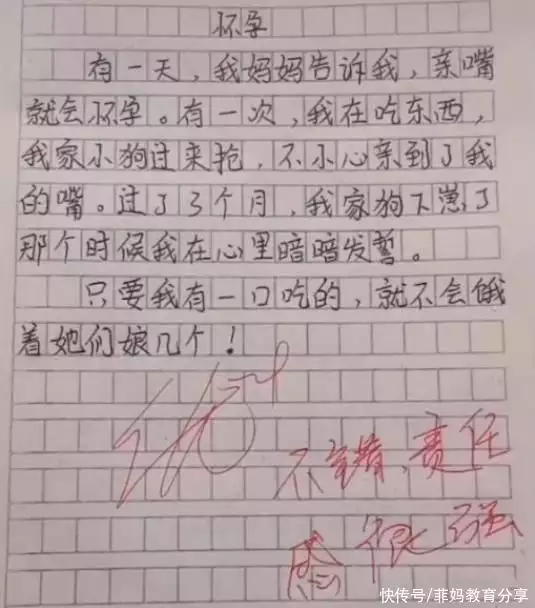 怀孕
有一天，我妈妈告诉我，亲嘴
就会怀孕。有一次，我在吃东西，
我家小狗过来抢，不小心亲到了我
的嘴。过了3个月，我家狗下崽了
那个时候我在心里暗暗发誓。
只要我有一口吃的，就不会饿
着她们娘几个！
优
不错，责任
感很强
快传号/菲妈教育分享